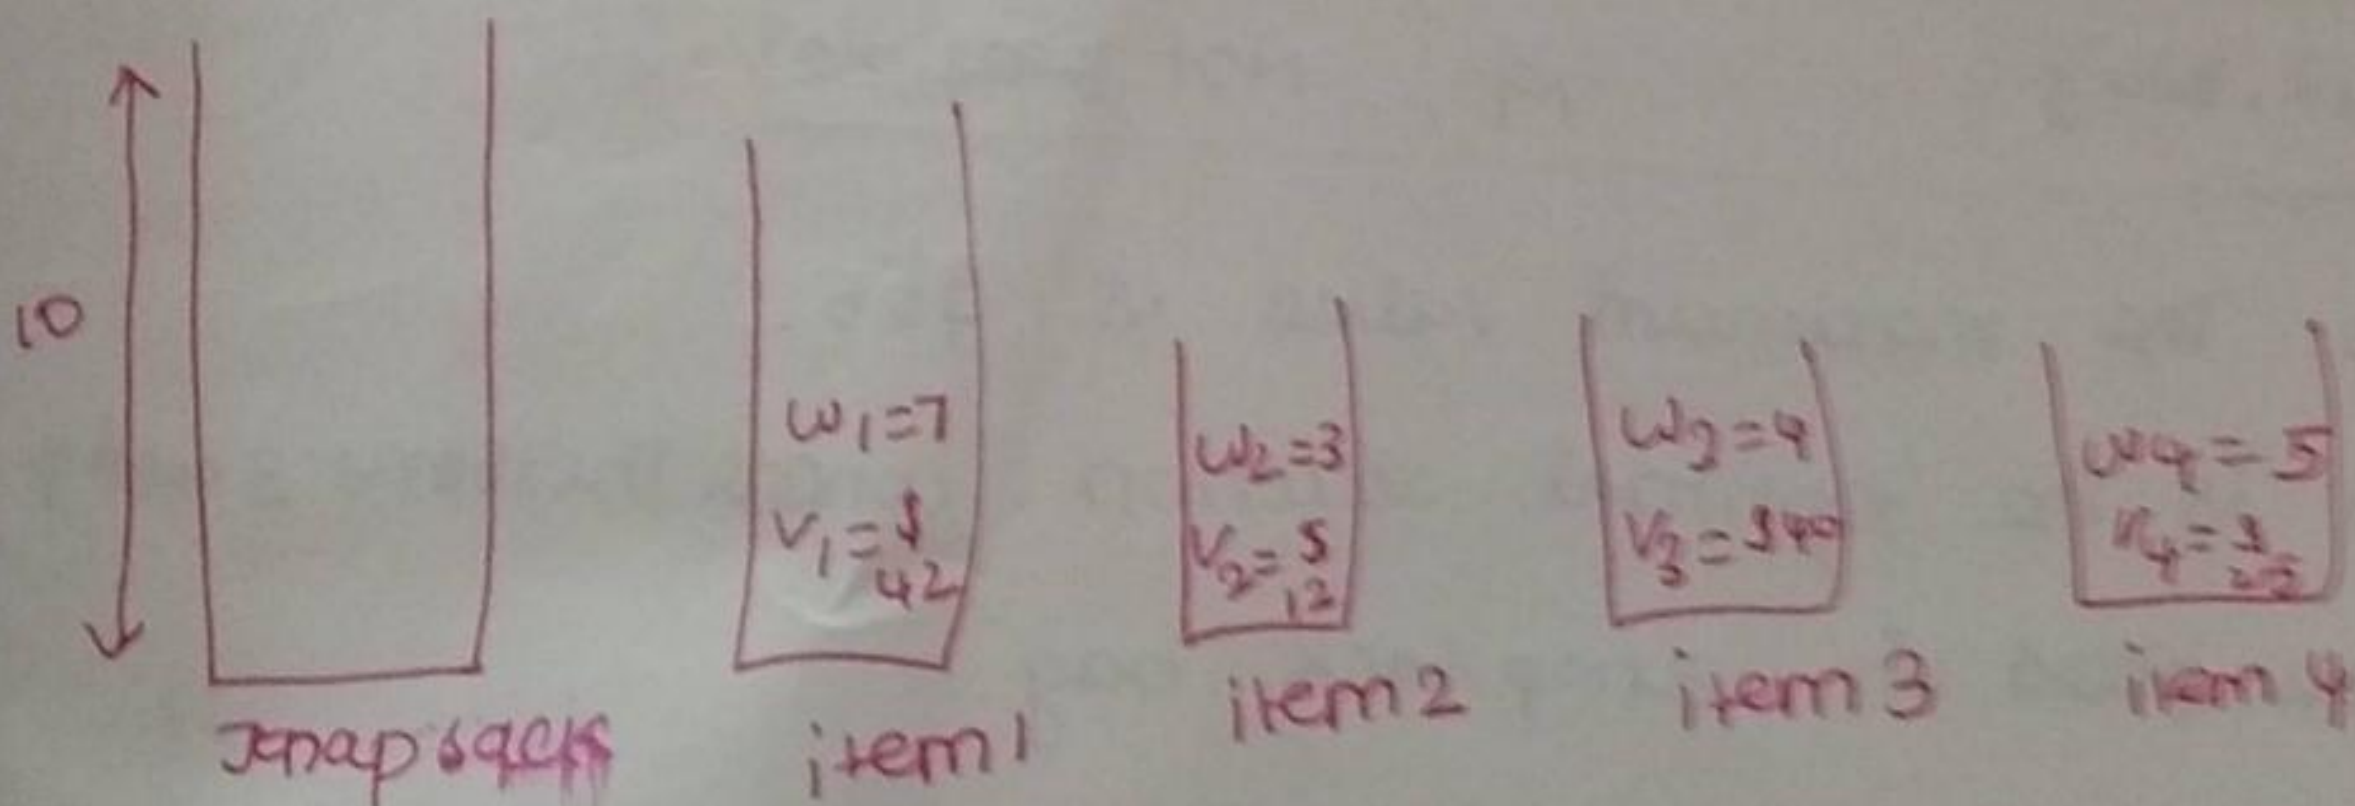 10
knapsack
w1=7
V1=$
42
item1
w2=3
V2=$
12
item2
w3=4
V3=$40
item 3
w4=5
V4=$
25
item 4